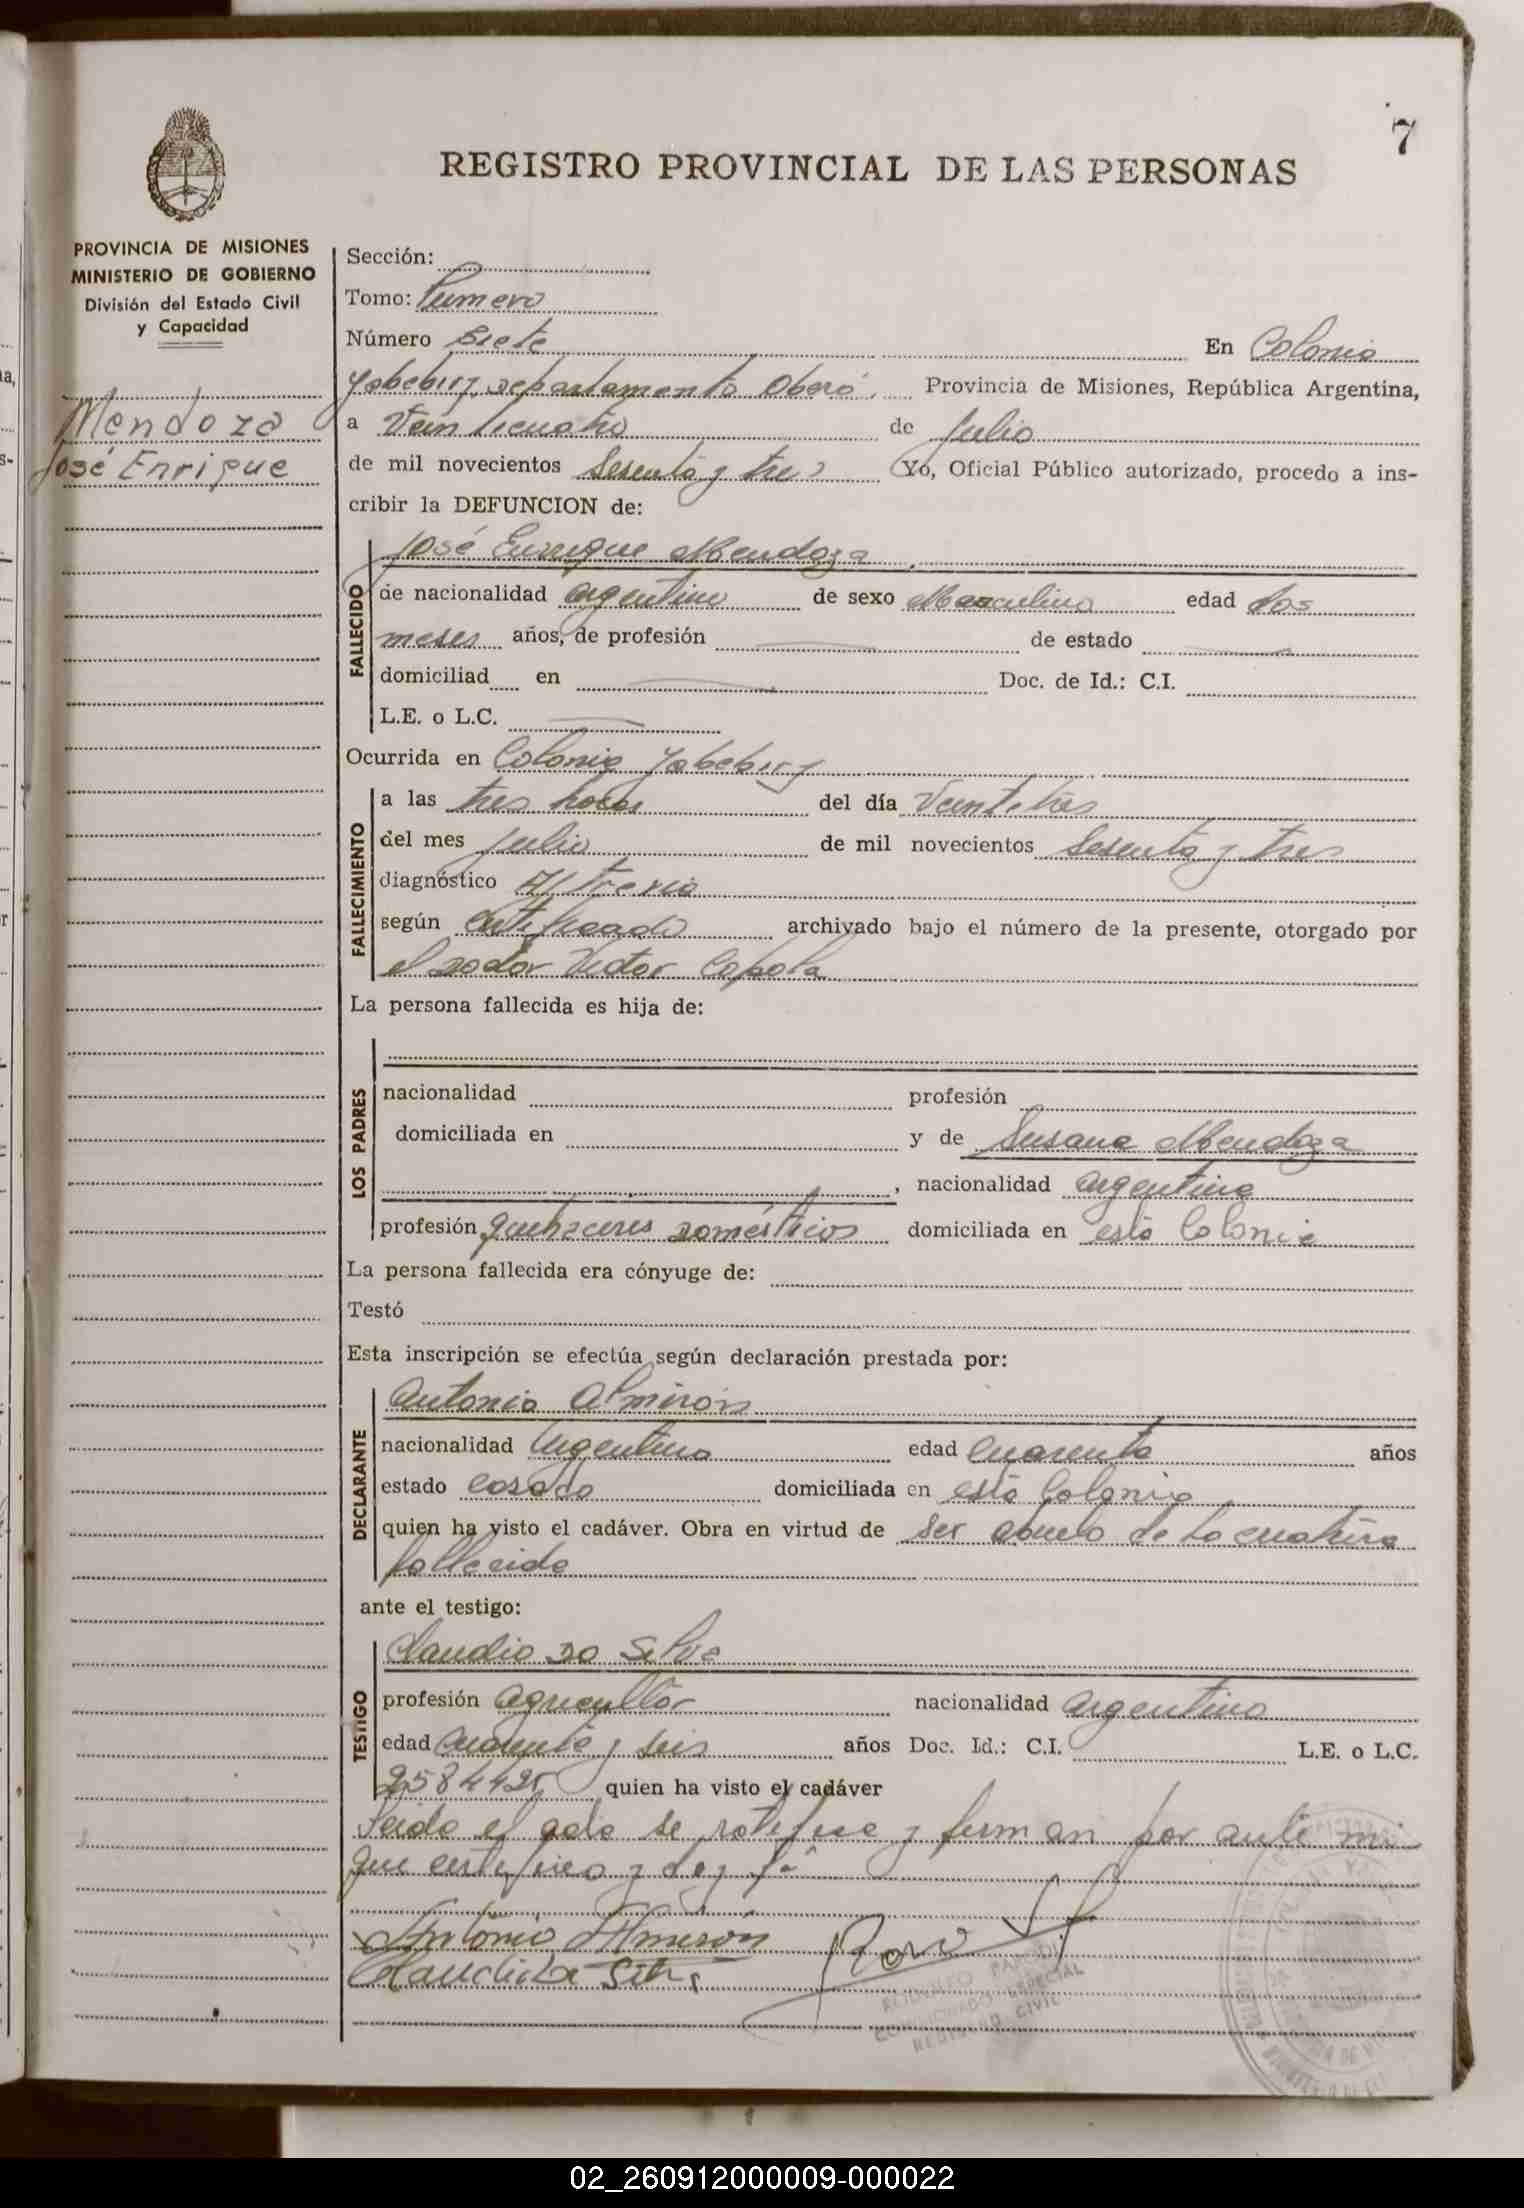 7
REGISTRO PROVINCIAL DE LAS PERSONAS
PROVINCIA DE MISIONES
MINISTERIO DE GOBIERNO
División del Estado Civil
y Capacidad
Mendoza
José Enrique
Sección:
Tomo: Primero
Número Siete En Colonia
Yabebiry, Departamento Oberá, Provincia de Misiones, República Argentina,
a Veinticuatro de Julio
de mil novecientos Sesenta y tres Yo, Oficial Público autorizado, procedo a ins-
cribir la DEFUNCION de:
FALLECIDO
José Enrrique Mendoza
de nacionalidad argentino de sexo Masculino edad dos
meses años, de profesión de estado
domiciliad en Doc. de Id.: C.I.
L.E. o L.C.
Ocurrida en Colonia Yabebiry
FALLECIMIENTO
a las tres horas del día Veintitres
del mes Julio de mil novecientos Sesenta y tres
diagnóstico
según certificado archivado bajo el número de la presente, otorgado por
el Doctor Victor
La persona fallecida es hija de:
LOS PADRES
nacionalidad profesión
domiciliada en y de Susana Mendoza
, nacionalidad argentina
profesión quehaceres domésticos domiciliada en esta Colonia
La persona fallecida era cónyuge de:
Testó
Esta inscripción se efectúa según declaración prestada por:
DECLARANTE
Antonio Almirón
nacionalidad Argentino edad cuarenta años
estado casado domiciliada en esta Colonia
quien ha visto el cadáver. Obra en virtud de ser abuelo de la criatura
fallecida
ante el testigo:
TESTIGO
Claudio Da Silva
profesión agricultor nacionalidad argentino
edad cuarenta y seis años Doc. Id.: C.I. L.E. o L.C.
quien ha visto el cadáver
Leida el acta se ratifica y firman por ante mi
que certifico y doy fé
Antonio Almirón
REGISTRO CIVIL
02_260912000009-000022